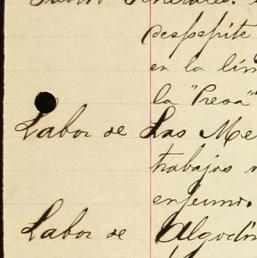 Generales.
despepite
en la lím
la "Presa"
Labor de Las Me
trabajos
enfermo.
Labor de Algodón